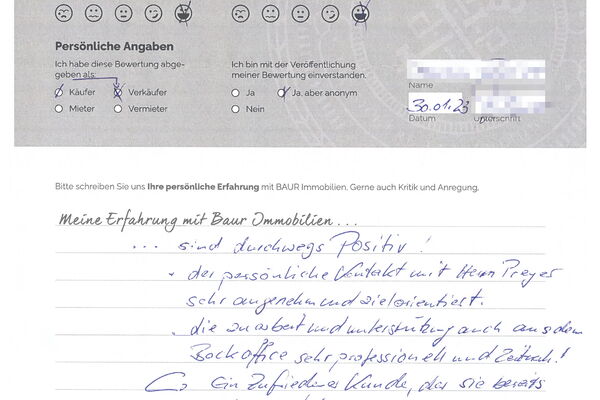 Persönliche Angaben
Ich habe diese Bewertung abge-
geben als:
Käufer
Verkäufer
Mieter
Vermieter
Ich bin mit der Veröffentlichung
meiner Bewertung einverstanden.
Ja
Ja, aber anonym
Nein
Name
30.01.23
Datum
Unterschrift
Bitte schreiben Sie uns Ihre persönliche Erfahrung mit BAUR Immobilien. Gerne auch Kritik und Anregung.
Meine Erfahrung mit Baur Immobilien...
... sind durchwegs Positiv!
- der persönliche Kontakt mit Herrn
sehr angenehm und zielorientiert.
- die zuarbeit und unterstützung auch aus dem
Backoffice sehr professionell und Zeitnah!
Ein Zufriedener Kunde, der sie bereits